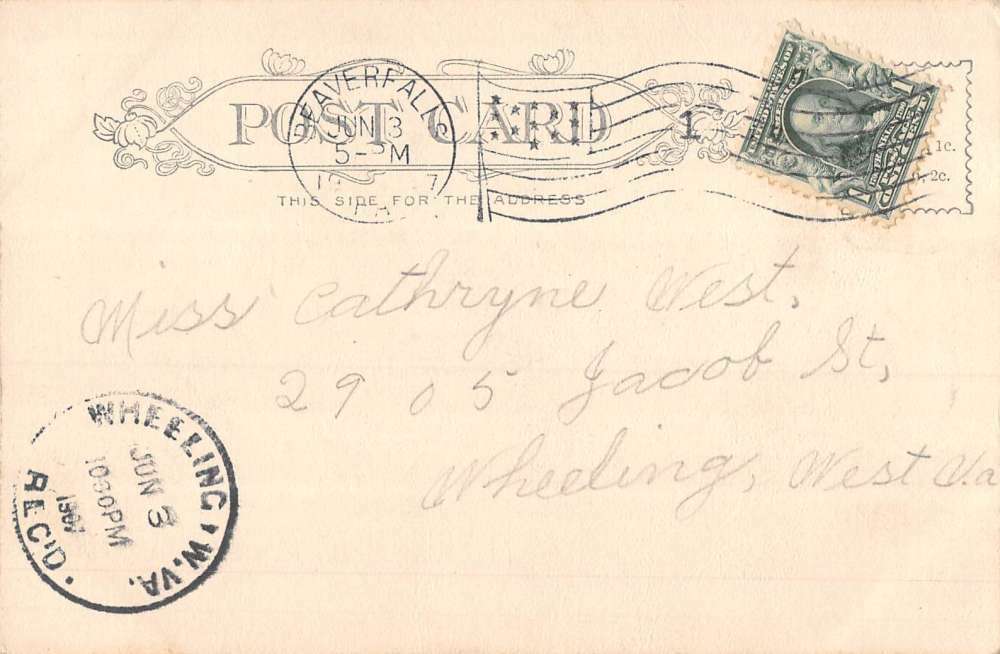 POST CARD
THIS SIDE FOR THE ADDRESS
BEAVER FALLS
JUN 3
5- PM
19 7
PA
1
1c.
2c.
Miss Cathryne West,
2905 Jacob St,
Wheeling, West Va
WHEELING, W.VA.
JUN 3
1000PM
1907
REC'D.